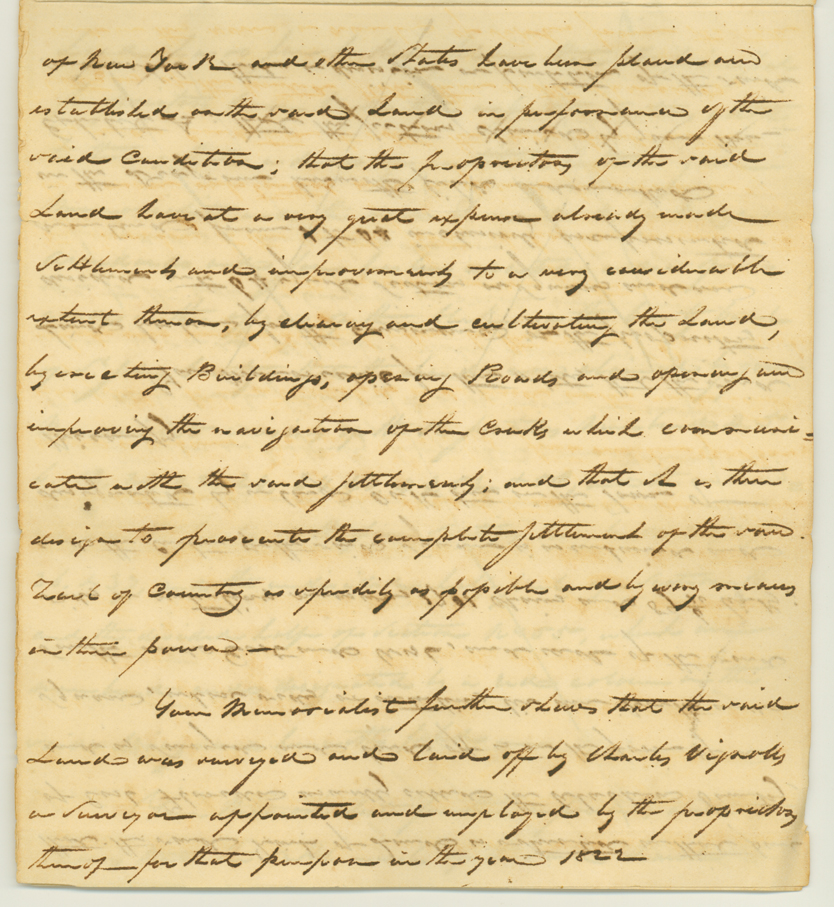 of New York and other States have been placed and
established on the said Land in performance of the
said Condition; that the proprietors of the said
Land have at a very great expense already made
Settlements and improvements to a very considerable
extent thereon, by clearing and cultivating the Land,
by erecting Buildings, opening Roads and opening and
improving the navigation of the Creeks which communi=
cate with the said settlements; and that it is their
design to prosecute the complete settlement of the said
Tract of Country as speedily as possible and by every means
in their power.—
Your Memorialist further shews that the said
Land was surveyed and laid off by Charles Vignolles
a Surveyor appointed and employed by the proprietors
thereof for that purpose in the year 1822